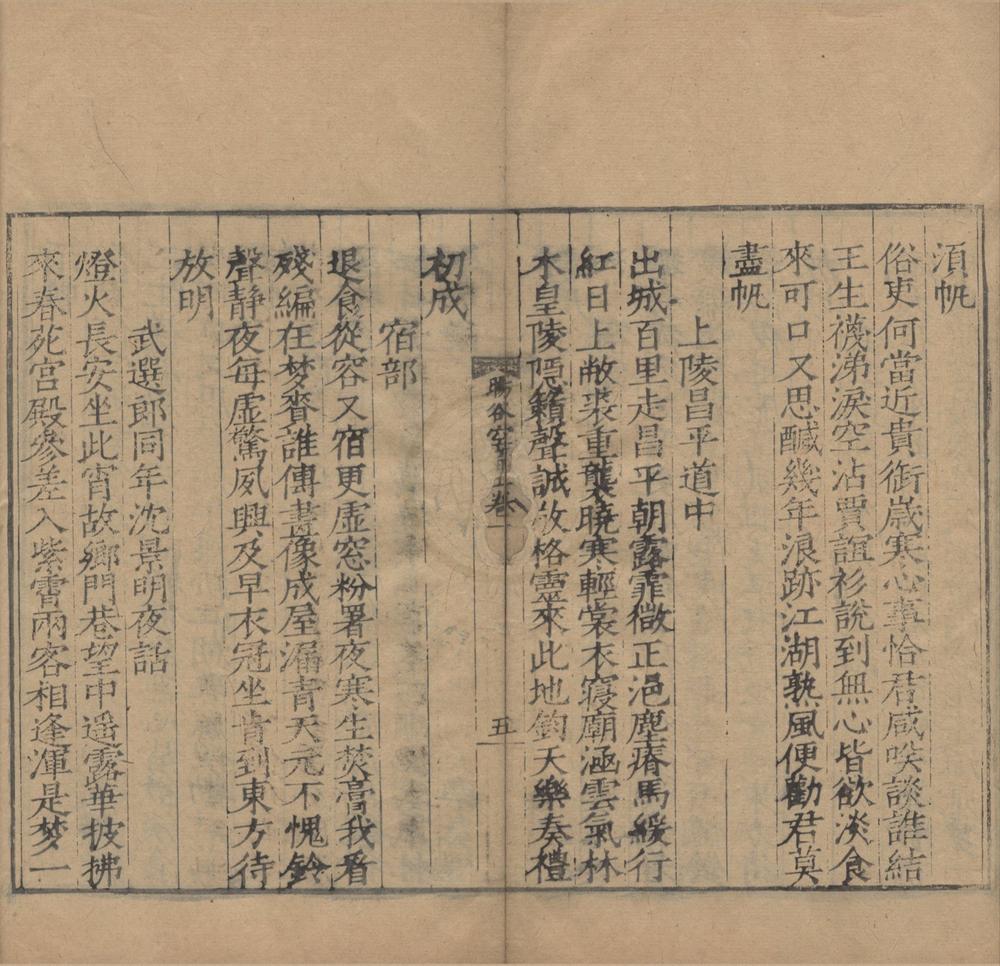 湏帆
俗吏何當近貴銜歳寒心事恰君咸唉談誰結
王生襪涕淚空沾賈誼衫說到無心皆欲淡食
來可口又思醎幾年浪跡江湖熟風便勸君莫
盡帆
上陵昌平道中
出城百里走昌平朝露霏微正浥塵瘠馬緩行
紅日上敝裘重襲曉寒輕裳衣寢廟涵雲氣林
木皇陵隠籟聲誠敬格靈來此地鈞天樂奏禮
初成
暘谷空音上卷一
五
宿部
退食從容又宿更虛窓粉署夜寒生焚膏我看
殘編在梦賚誰傳畫像成屋漏青天元不愧鈴
聲靜夜每虛驚夙興及早衣冠坐肯到東方待
放明
武選郎同年沈景明夜話
燈火長安坐此宵故鄉門巷望中遥露華披拂
來春苑宫殿參差入紫霄兩客相逢渾是梦一